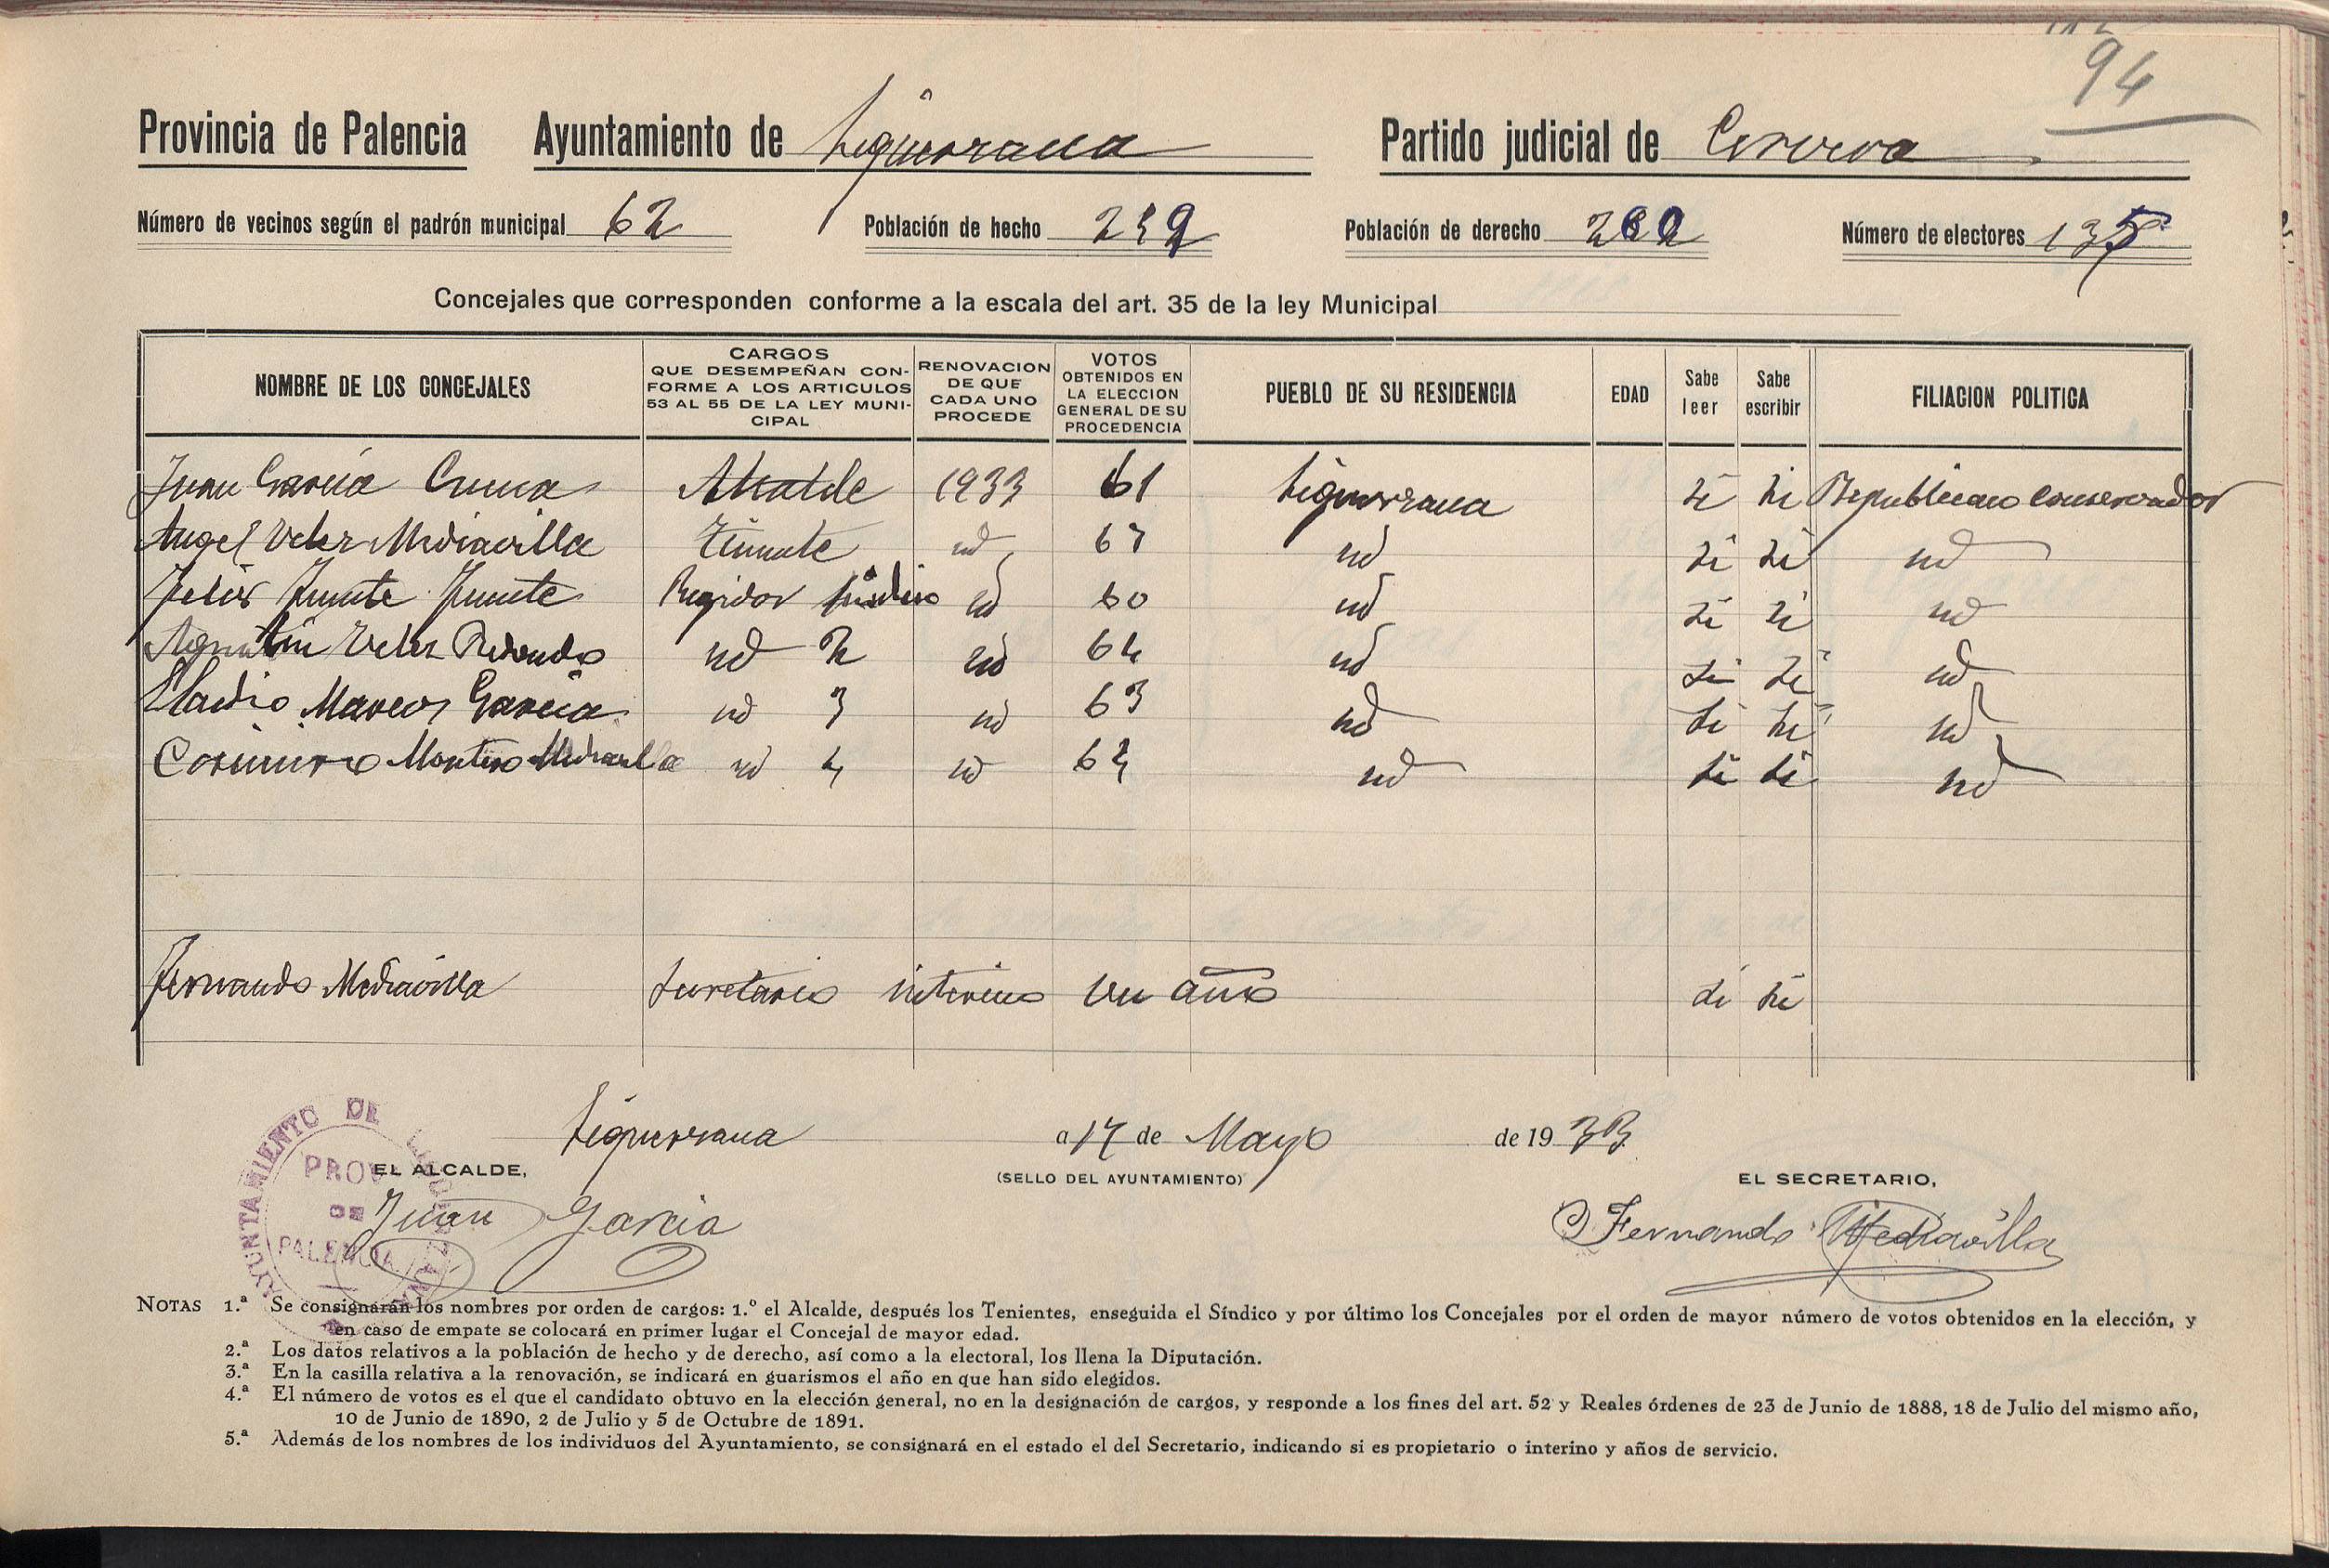 94
Provincia de Palencia Ayuntamiento de Ligüerzana Partido judicial de Cervera
Número de vecinos según el padrón municipal 62 Población de hecho Población de derecho Número de electores
Concejales que corresponden conforme a la escala del art. 35 de la ley Municipal
NOMBRE DE LOS CONCEJALES
CARGOS
QUE DESEMPEÑAN CON-
FORME A LOS ARTICULOS
53 AL 55 DE LA LEY MUNI-
CIPAL
RENOVACION
DE QUE
CADA UNO
PROCEDE
VOTOS
OBTENIDOS EN
LA ELECCION
GENERAL DE SU
PROCEDENCIA
PUEBLO DE SU RESIDENCIA
EDAD
Sabe
leer
Sabe
escribir
FILIACION POLITICA
Juan García Cuena Alcalde 1933 61 Ligüerzana si si Republicano conservador
Angel Velez Mediavilla Teniente id 67 id si si id
Felix Fuente Fuente Regidor Síndico id 60 id si si id
Agustin Velez Redondo id 2 id 64 id si si id
Eladio Marcos García id 3 id 63 id si si id
Casimiro Montero Mediavilla id 4 id id si si id
Fernando Mediavilla Secretario interino un año si si
Ligüerzana a 17 de Mayo de 1933
AYUNTAMIENTO DE LIGÜERZANA
PROV
DE
PALENCIA
EL ALCALDE,
(SELLO DEL AYUNTAMIENTO)
EL SECRETARIO,
Juan Garcia
Fernando Mediavilla
NOTAS 1.ª Se consignarán los nombres por orden de cargos: 1.º el Alcalde, después los Tenientes, enseguida el Síndico y por último los Concejales por el orden de mayor número de votos obtenidos en la elección, y
en caso de empate se colocará en primer lugar el Concejal de mayor edad.
2.ª Los datos relativos a la población de hecho y de derecho, así como a la electoral, los llena la Diputación.
3.ª En la casilla relativa a la renovación, se indicará en guarismos el año en que han sido elegidos.
4.ª El número de votos es el que el candidato obtuvo en la elección general, no en la designación de cargos, y responde a los fines del art. 52 y Reales órdenes de 23 de Junio de 1888, 18 de Julio del mismo año,
10 de Junio de 1890, 2 de Julio y 5 de Octubre de 1891.
5.ª Además de los nombres de los individuos del Ayuntamiento, se consignará en el estado el del Secretario, indicando si es propietario o interino y años de servicio.